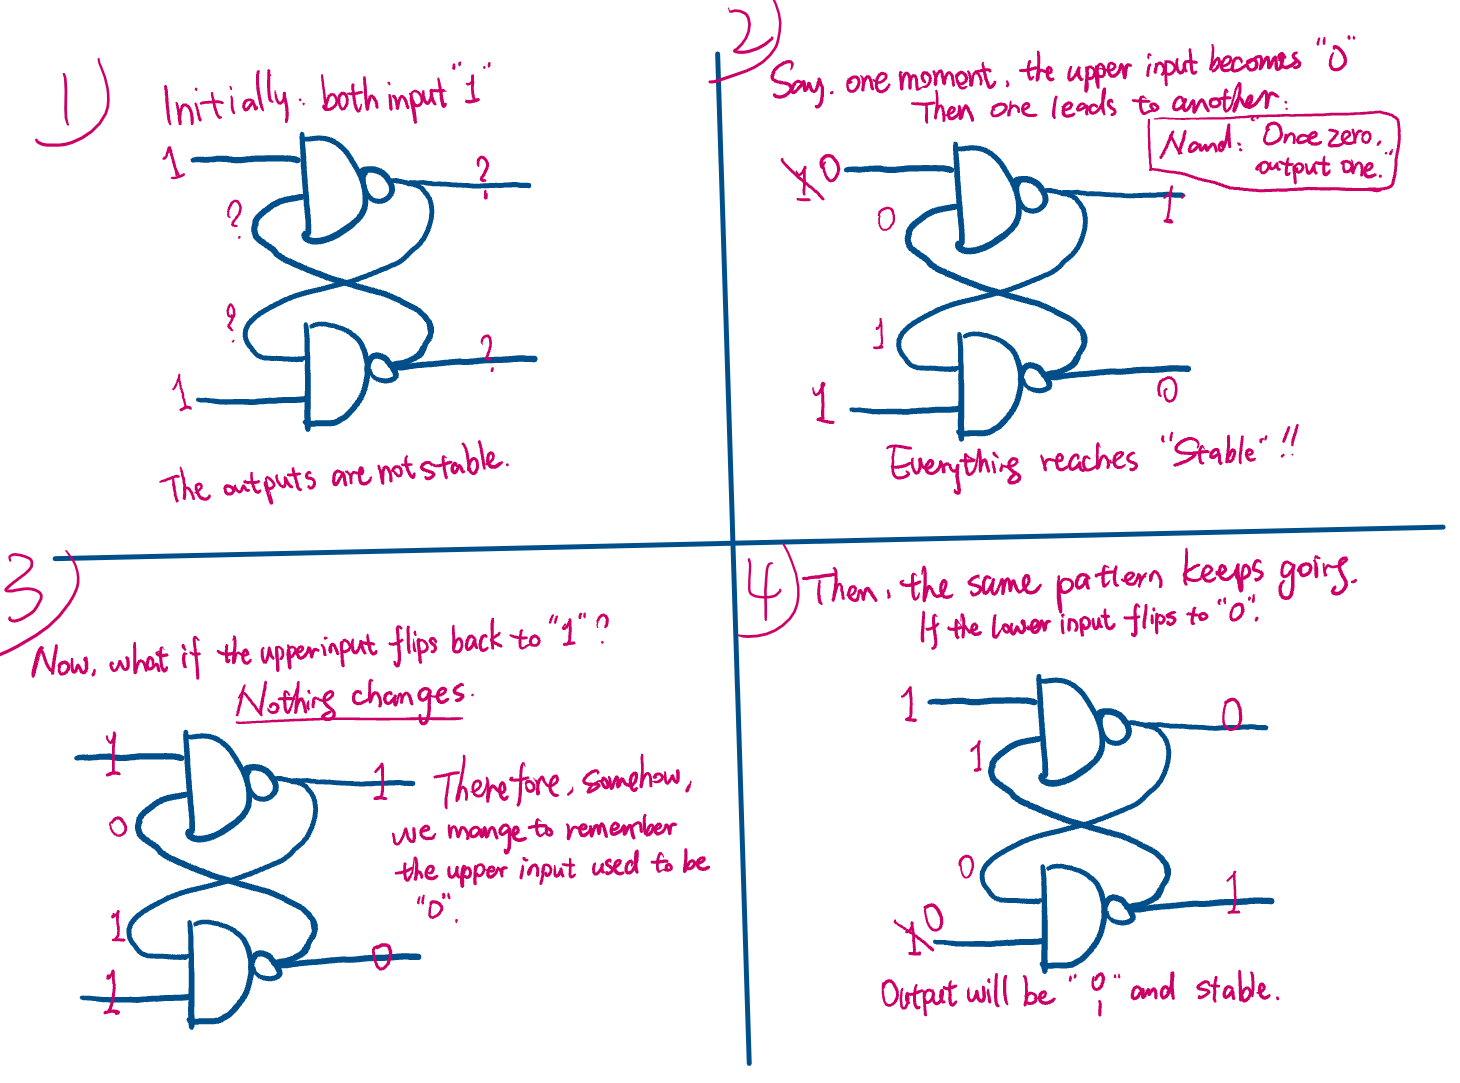 1)
Initially: both input "1"
1
?
?
?
?
1
The outputs are not stable.
2)
Say, one moment, the upper input becomes "0"
Then one leads to another:
Nand: "Once zero,
output one."
1 0
0
1
1
1
0
Everything reaches "Stable"!!
3)
Now, what if the upper input flips back to "1"?
Nothing changes.
1
1
0
1
1
0
Therefore, somehow,
we mange to remember
the upper input used to be
"0".
4)
Then, the same pattern keeps going.
If the lower input flips to "0".
1
0
1
0
1
1 0
Output will be "0
1" and stable.